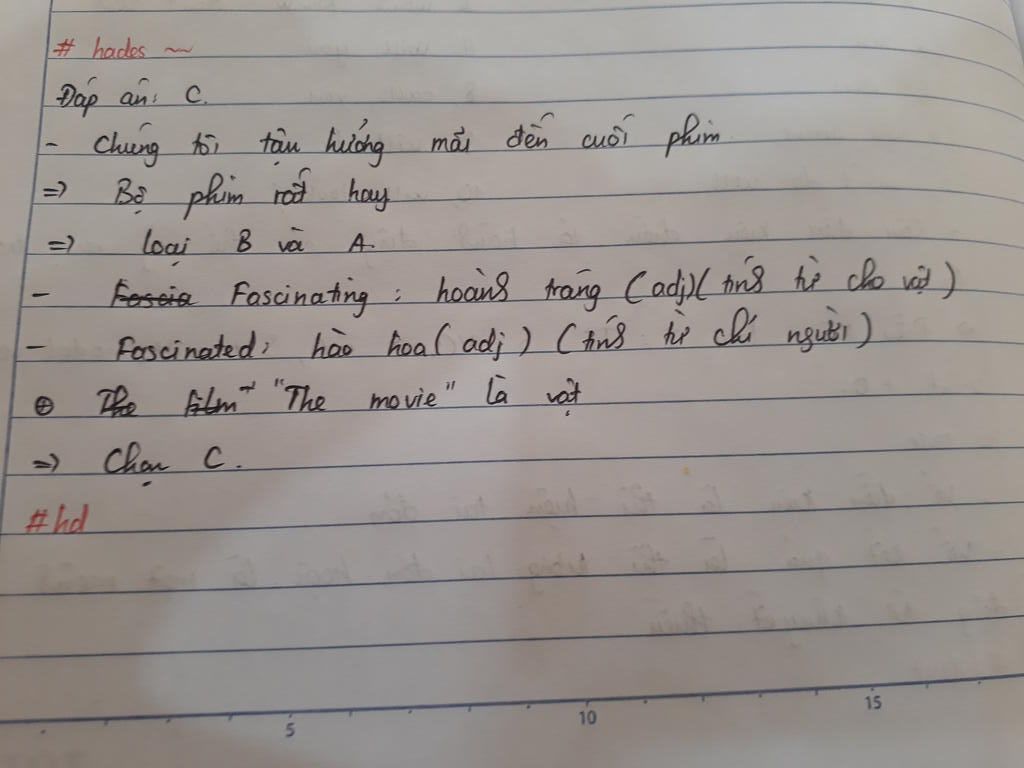 # hades ~
Đáp án: C.
- Chúng tôi tận hưởng mãi đến cuối phim
=> Bộ phim rất hay
=> loại B và A.
- Fascia Fascinating : hoàng tráng (adj)( tính từ cho vật )
- Fascinated: hào hoa (adj) (tính từ chỉ người)
⊕ The film → "The movie" là vật
=> Chọn C.
#hd
5 10 15